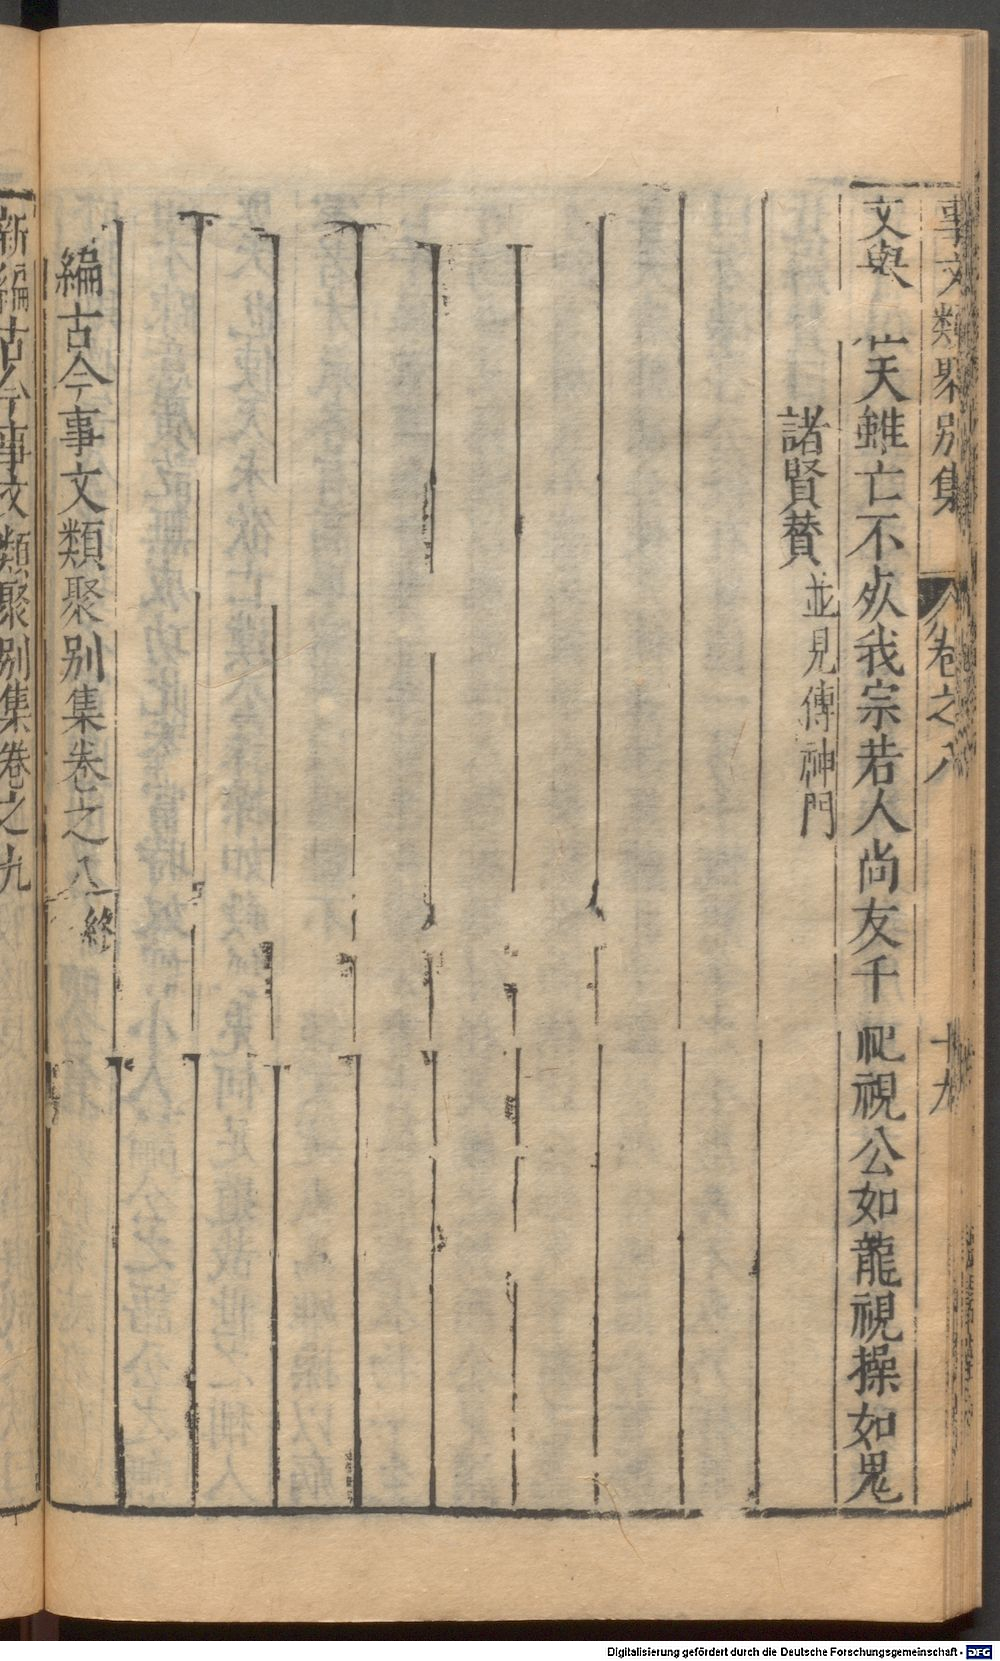 事文類聚別集 卷之八 十九
文與 在天雖亡不歿我宗若人尚友千祀視公如龍視操如鬼
諸賢賛 並見傳神門
編古今事文類聚別集卷之八 終
新編古今事文類聚別集卷之九
Digitalisierung gefördert durch die Deutsche Forschungsgemeinschaft - DFG